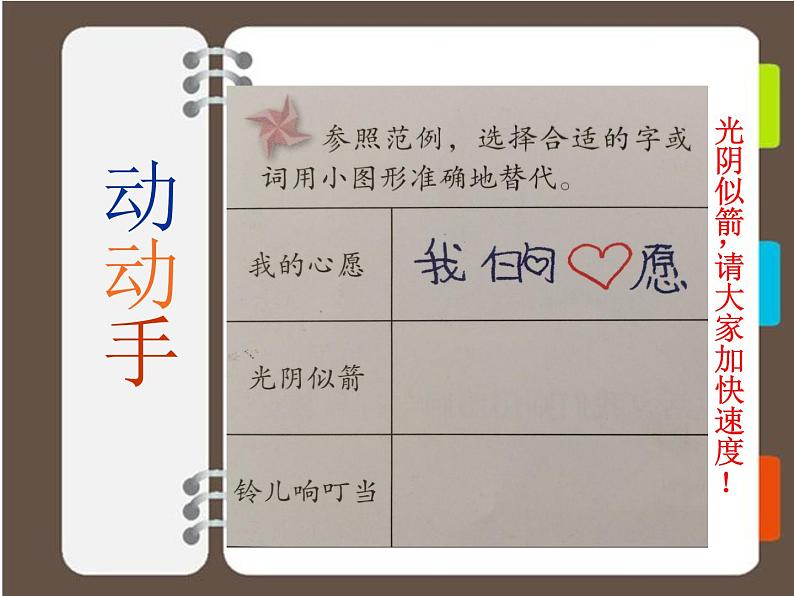 动动手
参照范例，选择合适的字或
词用小图形准确地替代。
我的心愿
我的♡愿
光阴似箭
铃儿响叮当
光阴似箭，请大家加快速度！